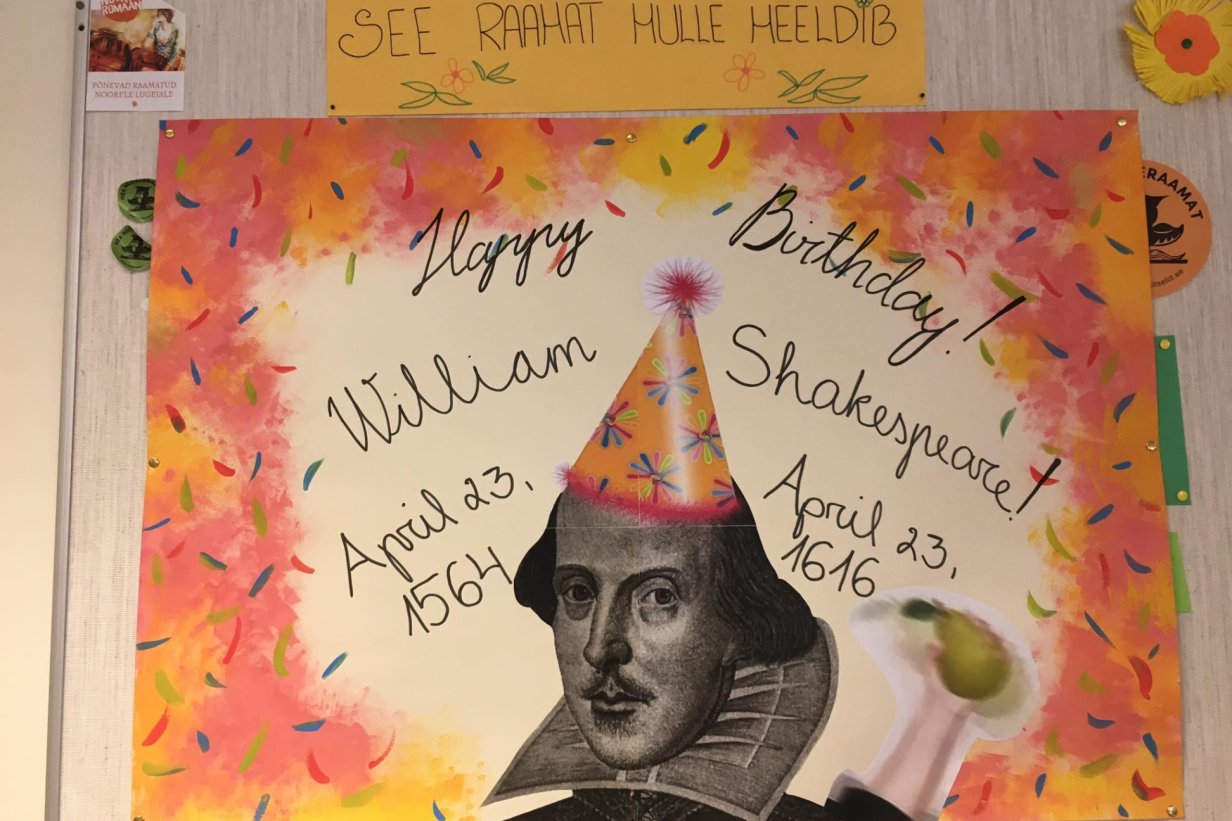 ROMAAN
PÕNEVAD RAAMATUD
NOORELE LUGEJALE
SEE RAAMAT MULLE MEELDIB
Happy Birthday!
William Shakespeare!
April 23, 1564
April 23, 1616